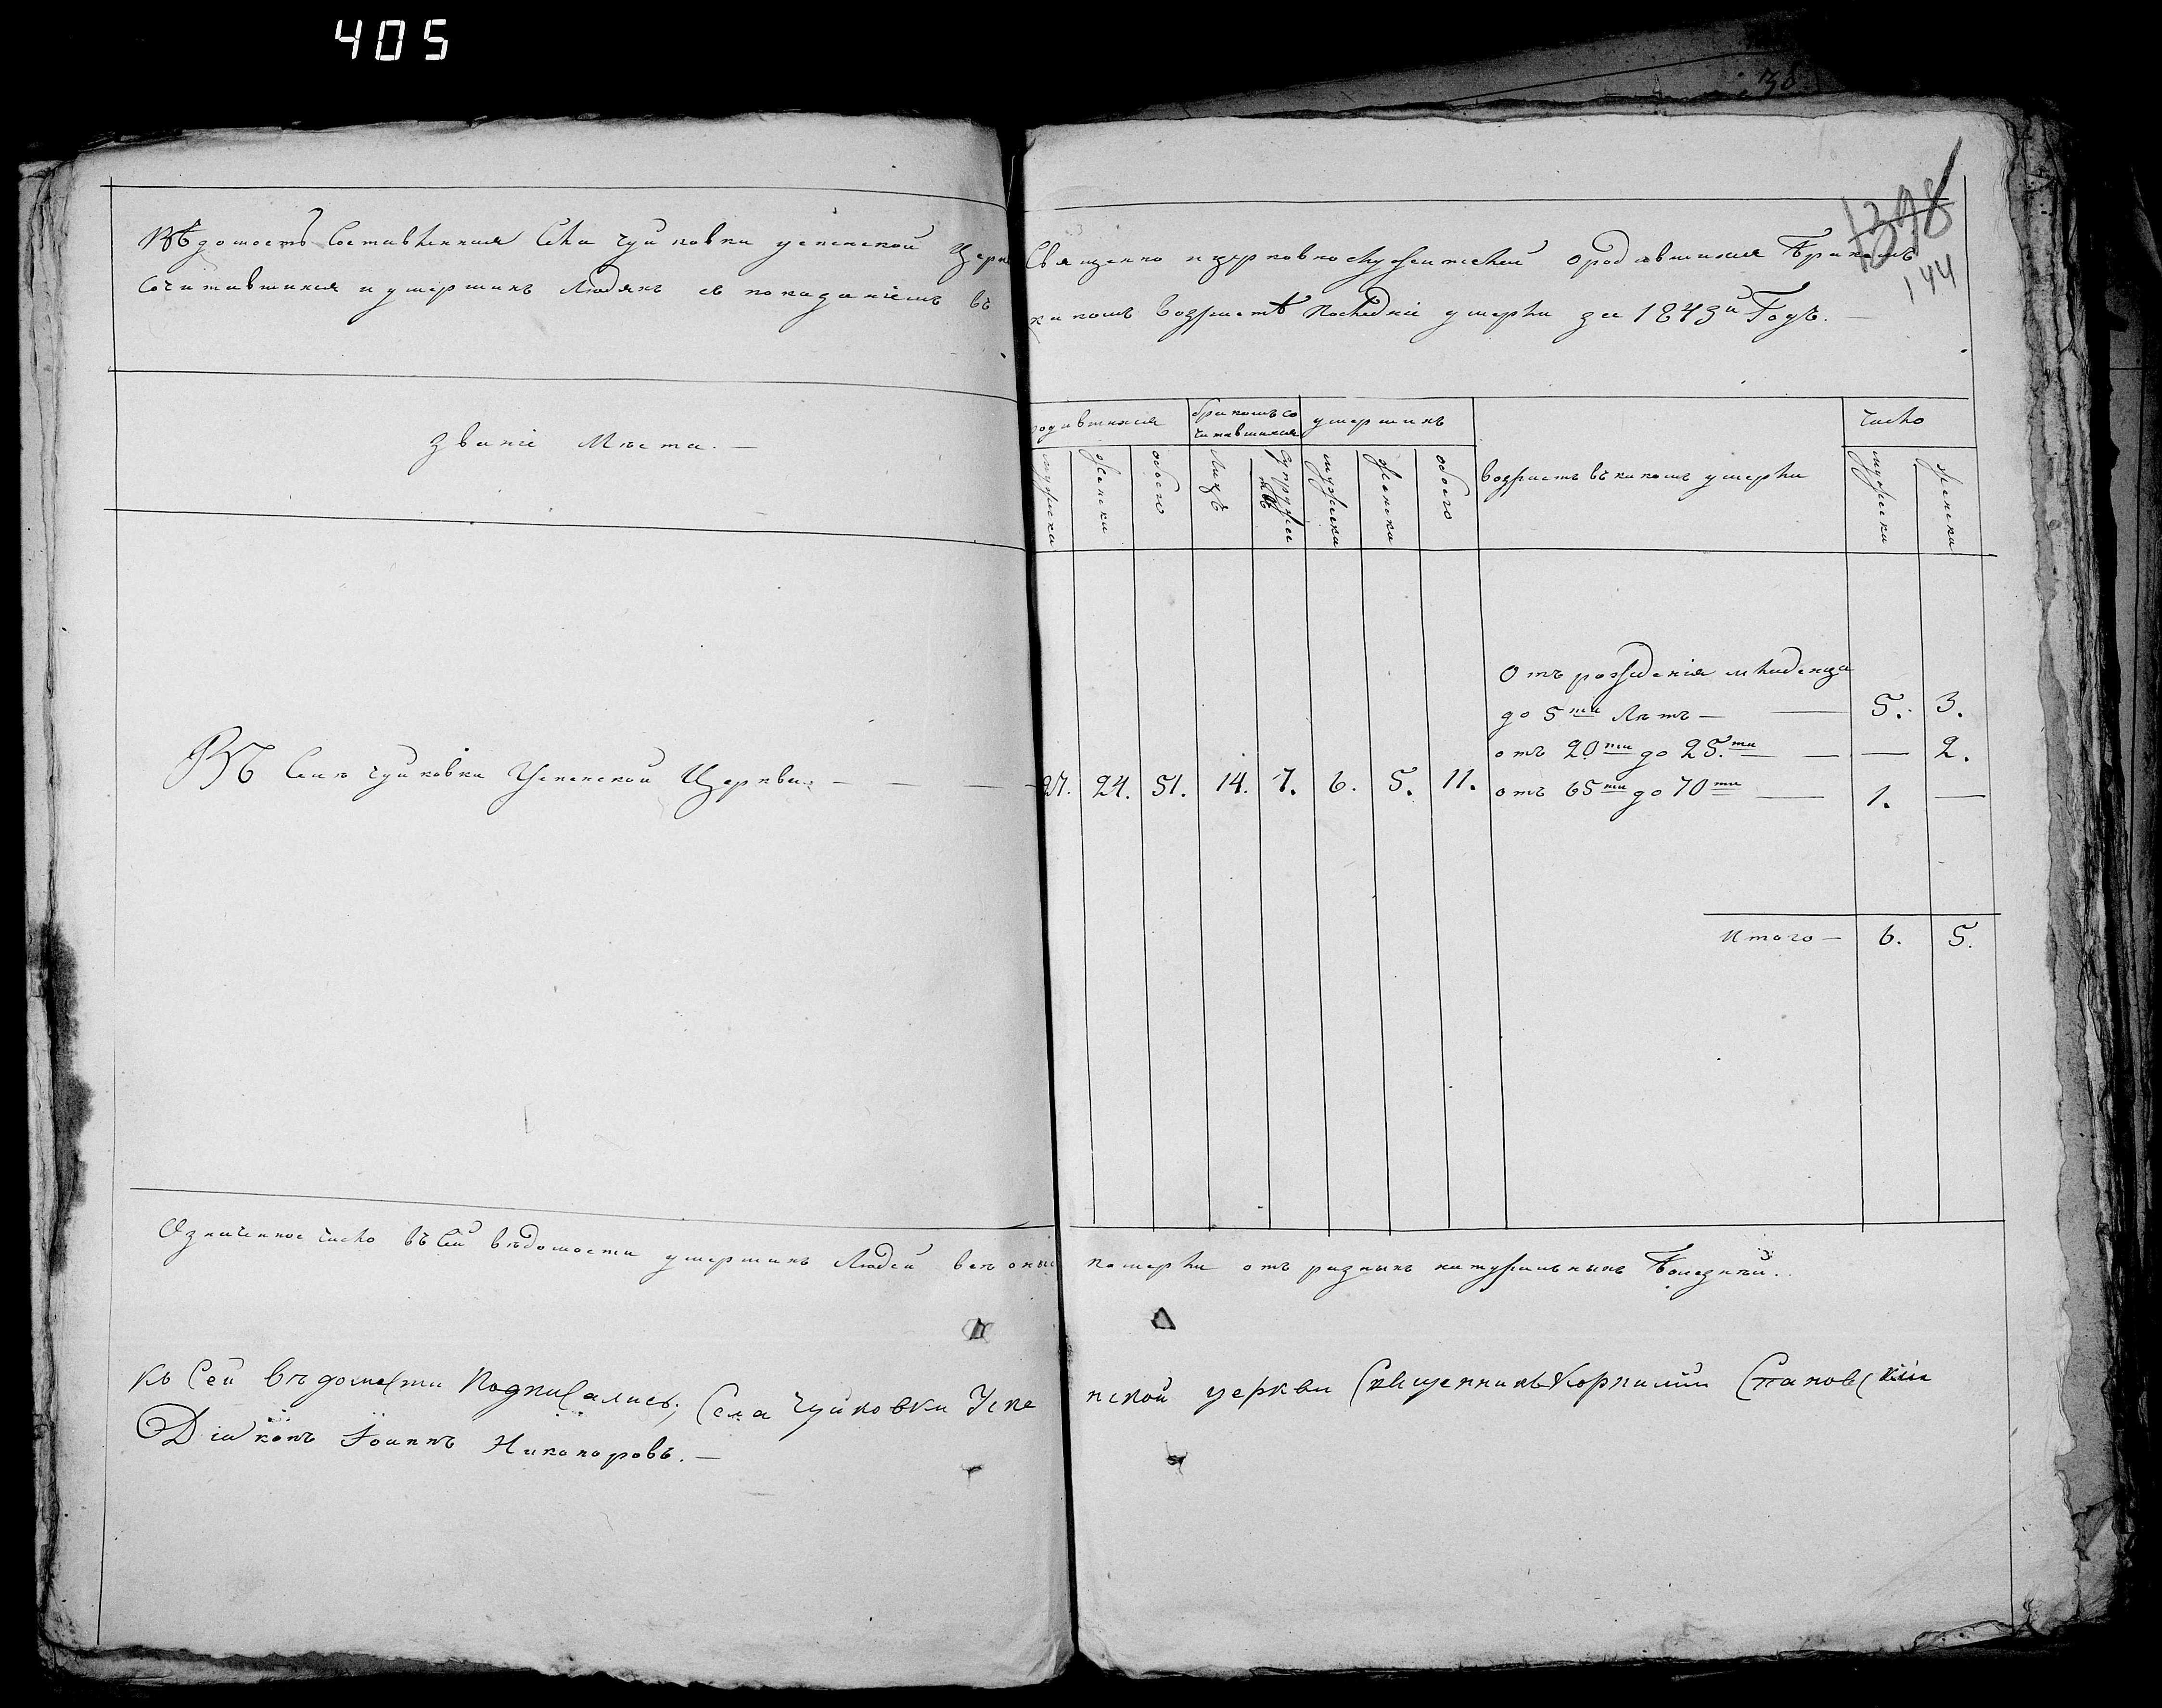 405
38
1398
144
Вѣдомость Составленная Села чуйковки успенской Церк Священно ицерковнослужителей ородившихся Бракомъ
Сочитавшихся и умершихъ людяхъ съ показаніемъ въ какомъ возрастѣ последніе умерли за 1843й Годъ. —
званіе Мѣста. —
родившихся
бракомъ со
читавшихся
умершихъ
возрастъ въ какомъ умерли
число
мужеска
женска
обоего
Лицъ
Супружес
твъ
мужеска
женска
обоего
мужеска
женска
Отъ рожденія младенца
до 5ти Лѣтъ — 5. 3.
отъ 20ти до 25.ти — — 2.
Въ Селѣ чуйковки Успенской Церкви. — — — 27. 24. 51. 14. 7. 6. 5. 11. отъ 65ти до 70ти — 1. —
Итого — 6. 5.
Означенное число въ сей вѣдомости умершихъ Людей всѣ оные померли отъ разныхъ натуральныхъ Болезней.
Къ Сей вѣдомости Подписались; Села Чуйковки Успе нской церкви Священникъ Корнилий Становскій
Діаконъ Іоаннъ Никоноровъ. —